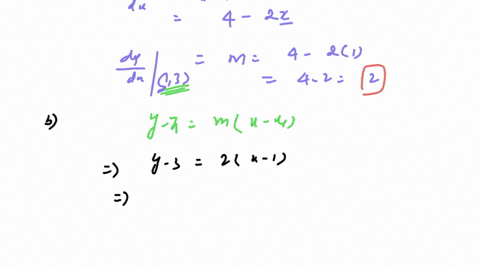 du
= 4 - 2x
dy/du |(1,3) = m = 4 - 2(1)
= 4-2 = 2
b) y-y₁ = m(x-x₁)
=) y-3 = 2(x-1)
=)